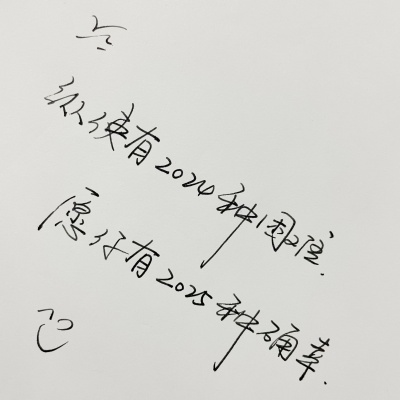 纵使有2024种困难.
愿仍有2025种确幸.